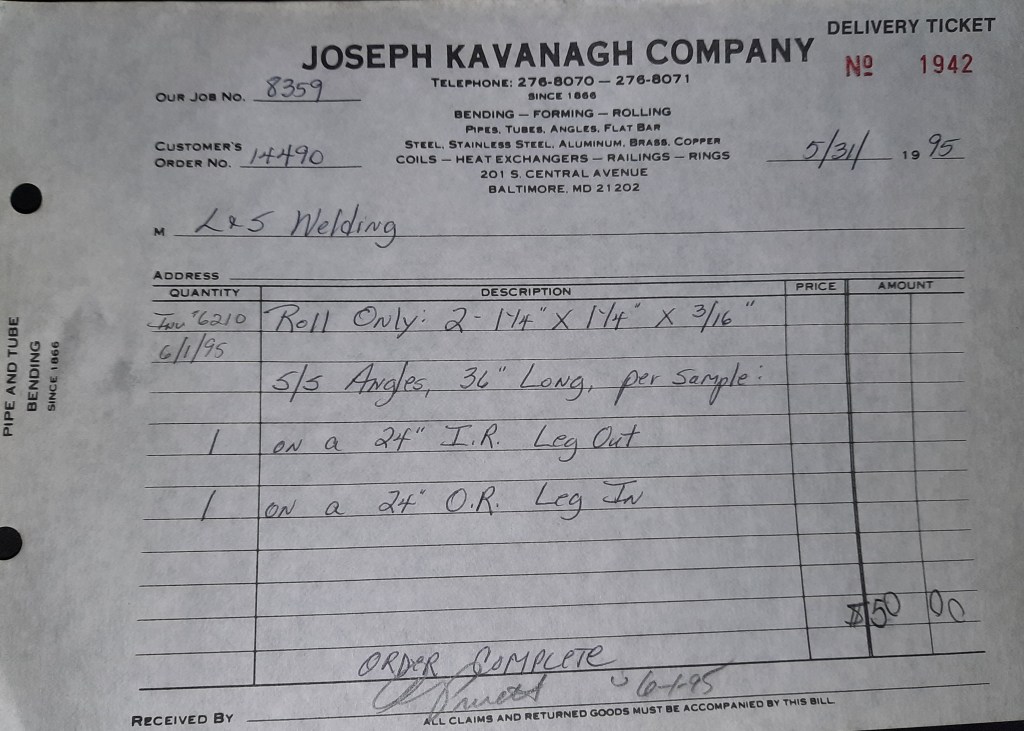 DELIVERY TICKET
JOSEPH KAVANAGH COMPANY
Nº 1942
TELEPHONE: 276-8070 — 276-8071
SINCE 1866
OUR JOB NO. 8359
BENDING — FORMING — ROLLING
PIPES, TUBES, ANGLES, FLAT BAR
CUSTOMER'S
ORDER NO. 14490
STEEL, STAINLESS STEEL, ALUMINUM, BRASS, COPPER
COILS — HEAT EXCHANGERS — RAILINGS — RINGS
5/31/ 19 95
201 S. CENTRAL AVENUE
BALTIMORE, MD 21202
M L & S Welding
ADDRESS
QUANTITY DESCRIPTION PRICE AMOUNT
Inv #6210 Roll Only: 2 - 1 1/4" X 1 1/4" X 3/16"
6/1/95
S/S Angles, 36" Long, per Sample:
1 on a 24" I.R. Leg Out
1 on a 24" O.R. Leg In
$50 00
ORDER COMPLETE
6-1-95
RECEIVED BY
ALL CLAIMS AND RETURNED GOODS MUST BE ACCOMPANIED BY THIS BILL
PIPE AND TUBE
BENDING
SINCE 1866